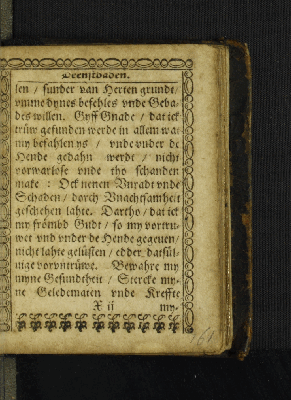 Deenstbaden.
len / sunder van Herten grundt /
vmme dynes befehles vnde Geba-
des willen. Gyff Gnade / dat ick
trüw gefunden werde in allem wat
my befahlen ys / vnde vnder de
Hende gedahn werdt / nicht
vorwarlose vnde tho schanden
make : Ock nenen Vnradt vnde
Schaden / dorch Vnachtsamheit
geschehen lahte. Dartho / dat ick
my frömbd Gudt / so my vortru-
wet vnd vnder de Hende gegeuen /
nicht lahte gelüsten / edder datsül-
uige vorvntrüwe. Bewahre my
myne Gesundtheit / Stercke my-
ne Geledematen vnde Kreffte
X ij my-
161